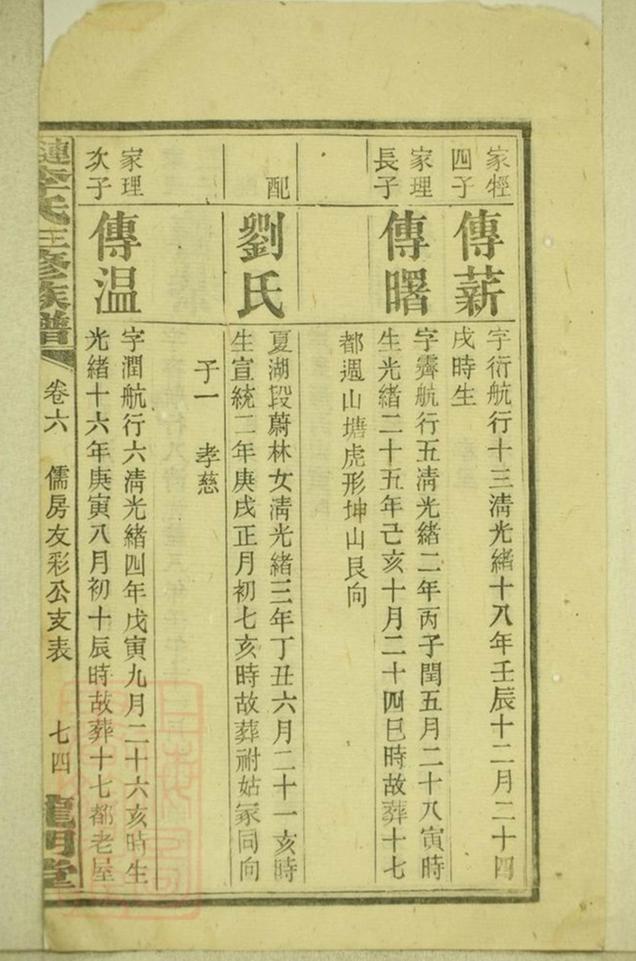 家㹵
四子
傳薪
字衍航行十三淸光緒十八年壬辰十二月二十四
戌時生
家理
長子
傳曙
字霽航行五淸光緒二年丙子閏五月二十八寅時
生光緒二十五年己亥十月二十四巳時故葬十七
都週山塘虎形坤山艮向
配
劉氏
夏湖段蔚林女淸光緒三年丁丑六月二十一亥時
生宣統二年庚戌正月初七亥時故葬祔姑冢同向
子一 孝慈
家理
次子
傳温
字潤航行六淸光緒四年戊寅九月二十六亥時生
光緒十六年庚寅八月初十辰時故葬十七都老屋
漣李氏三修族譜
卷六
儒房友彩公支表
七四
龍門堂